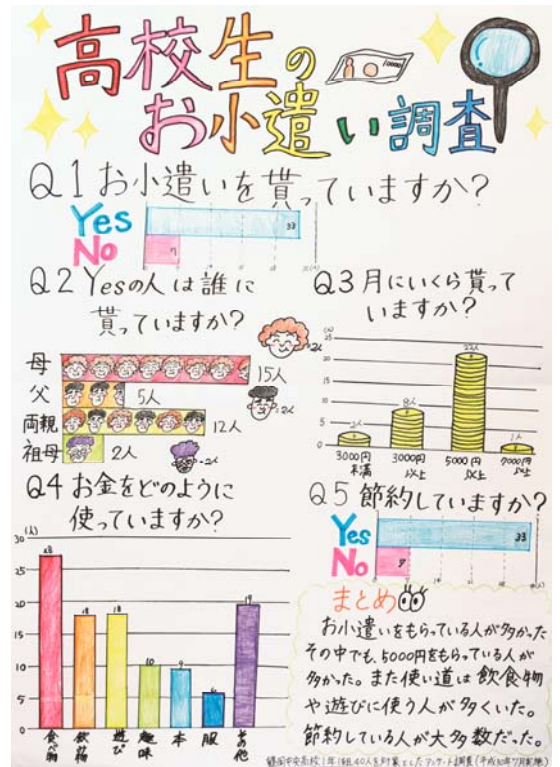 高校生の
お小遣い調査
10000
Q1お小遣いを貰っていますか?
Yes
33
No
7
Q2 Yesの人は誰に
貰っていますか?
母
15人
父
5人
両親
12人
祖母
2人
Q3月にいくら貰って
いますか?
(人)
25
20
15
10
5
0
2人
8人
22人
1人
3000円
未満
3000円
以上
5000円
以上
7000円
以上
Q4お金をどのように
使っていますか?
(人)
30
25
20
15
10
5
0
18
18
10
9
6
19
食べ物
飲物
遊び
趣味
本
服
その他
Q5節約していますか?
Yes
33
No
まとめ
お小遣いをもらっている人が多かった
その中でも、5000円をもらっている人が
多かった。また使い道は飲食物
や遊びに使う人が多くいた。
節約している人が大多数だった。
中央高校1年1組40人を対象としたアンケート調査(平成30年7月実施)